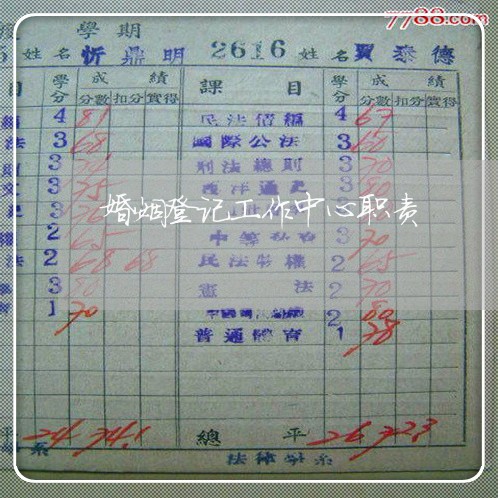 7788.com
學期
姓名 忻鼎明 2616 姓名 賈泰德
目 學分 成績 課目 學分 成績
分數 扣分 實得 分數 扣分 實得
4 81 民法債編 4 67
法 3 68 國際公法 3 60
3 刑法總則 3 70
3 75 西洋通史 3
婚姻登记工作中心职责
2 65 3 70
法 2 68 68 民法物權 2 65
3 憲法 2 70
1 70 2 80
普通體育 1 78
平 24 74.1 總平 26 72.3
系 法律學系